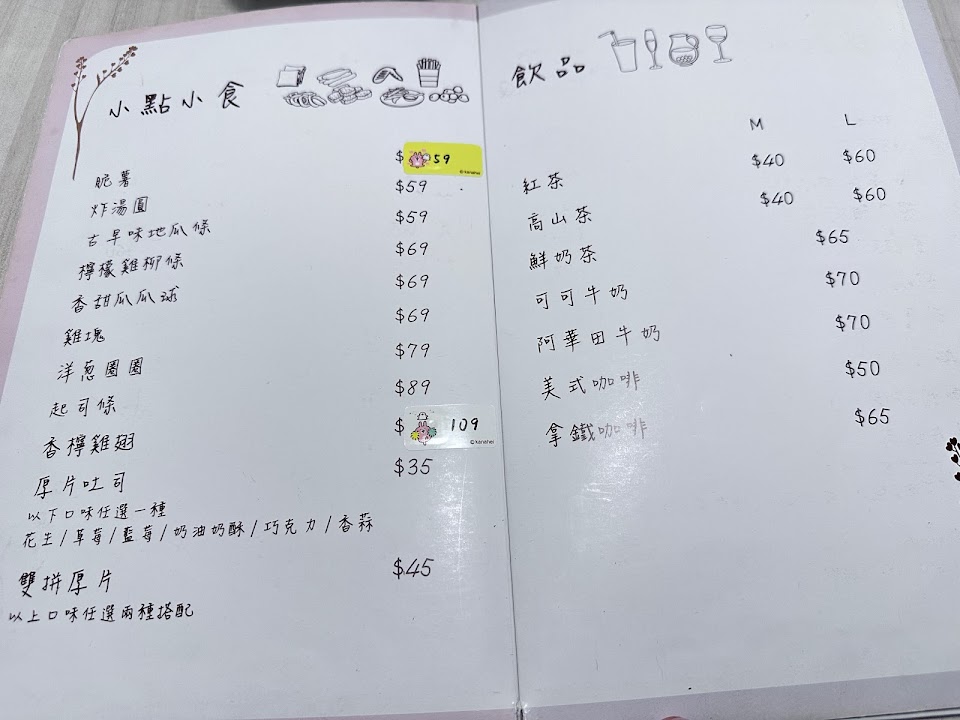 小點小食
脆薯 $59
炸湯圓 $59
古早味地瓜條 $59
檸檬雞柳條 $69
香甜瓜瓜球 $69
雞塊 $69
洋葱圈圈 $79
起司條 $89
香檸雞翅 $109
厚片吐司 $35
以下口味任選一種
花生/草莓/藍莓/奶油奶酥/巧克力/香蒜
雙拼厚片 $45
以上口味任選兩種搭配
飲品
M L
紅茶 $40 $60
高山茶 $40 $60
鮮奶茶 $65
可可牛奶 $70
阿華田牛奶 $70
美式咖啡 $50
拿鐵咖啡 $65
©kanahei
©kanahei